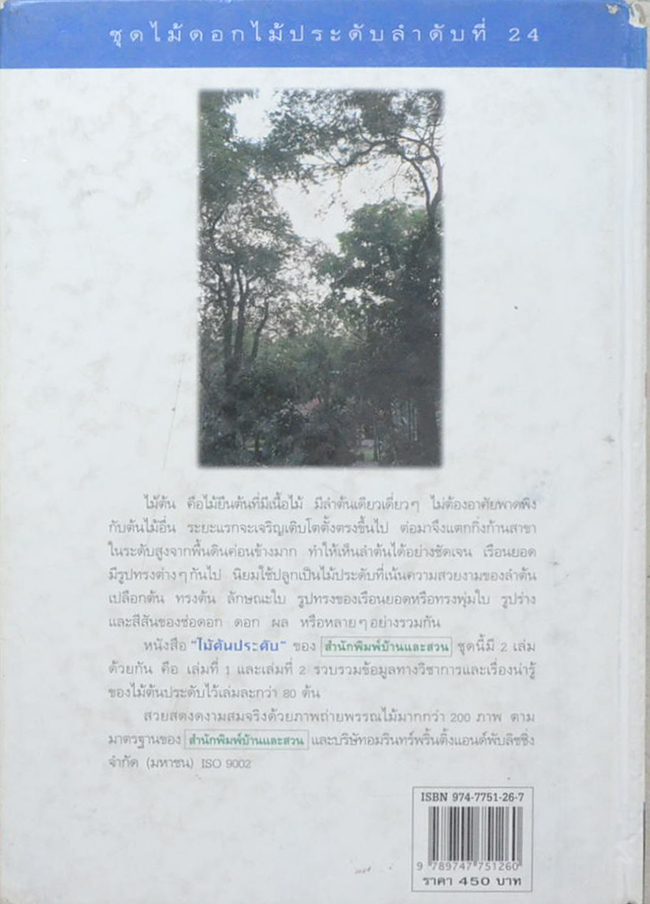 ชุดไม้ดอกไม้ประดับลำดับที่ 24
ไม้ต้น คือไม้ยืนต้นที่มีเนื้อไม้ มีลำต้นเดียวเดี่ยวๆ ไม่ต้องอาศัยพาดพิง
กับต้นไม้อื่น ระยะแรกจะเจริญเติบโตตั้งตรงขึ้นไป ต่อมาจึงแตกกิ่งก้านสาขา
ในระดับสูงจากพื้นดินค่อนข้างมาก ทำให้เห็นลำต้นได้อย่างชัดเจน เรือนยอด
มีรูปทรงต่างๆกันไป นิยมใช้ปลูกเป็นไม้ประดับที่เน้นความสวยงามของลำต้น
เปลือกต้น ทรงต้น ลักษณะใบ รูปทรงของเรือนยอดหรือทรงพุ่มใบ รูปร่าง
และสีสันของช่อดอก ดอก ผล หรือหลายๆอย่างรวมกัน
หนังสือ "ไม้ต้นประดับ" ของ สำนักพิมพ์บ้านและสวน ชุดนี้มี 2 เล่ม
ด้วยกัน คือ เล่มที่ 1 และเล่มที่ 2 รวบรวมข้อมูลทางวิชาการและเรื่องน่ารู้
ของไม้ต้นประดับไว้เล่มละกว่า 80 ต้น
สวยสดงดงามสมจริงด้วยภาพถ่ายพรรณไม้มากกว่า 200 ภาพ ตาม
มาตรฐานของ สำนักพิมพ์บ้านและสวน และบริษัทอมรินทร์พริ้นติ้งแอนด์พับลิชชิ่ง
จำกัด (มหาชน) ISO 9002
ISBN 974-7751-26-7
9 789747 751260
ราคา 450 บาท